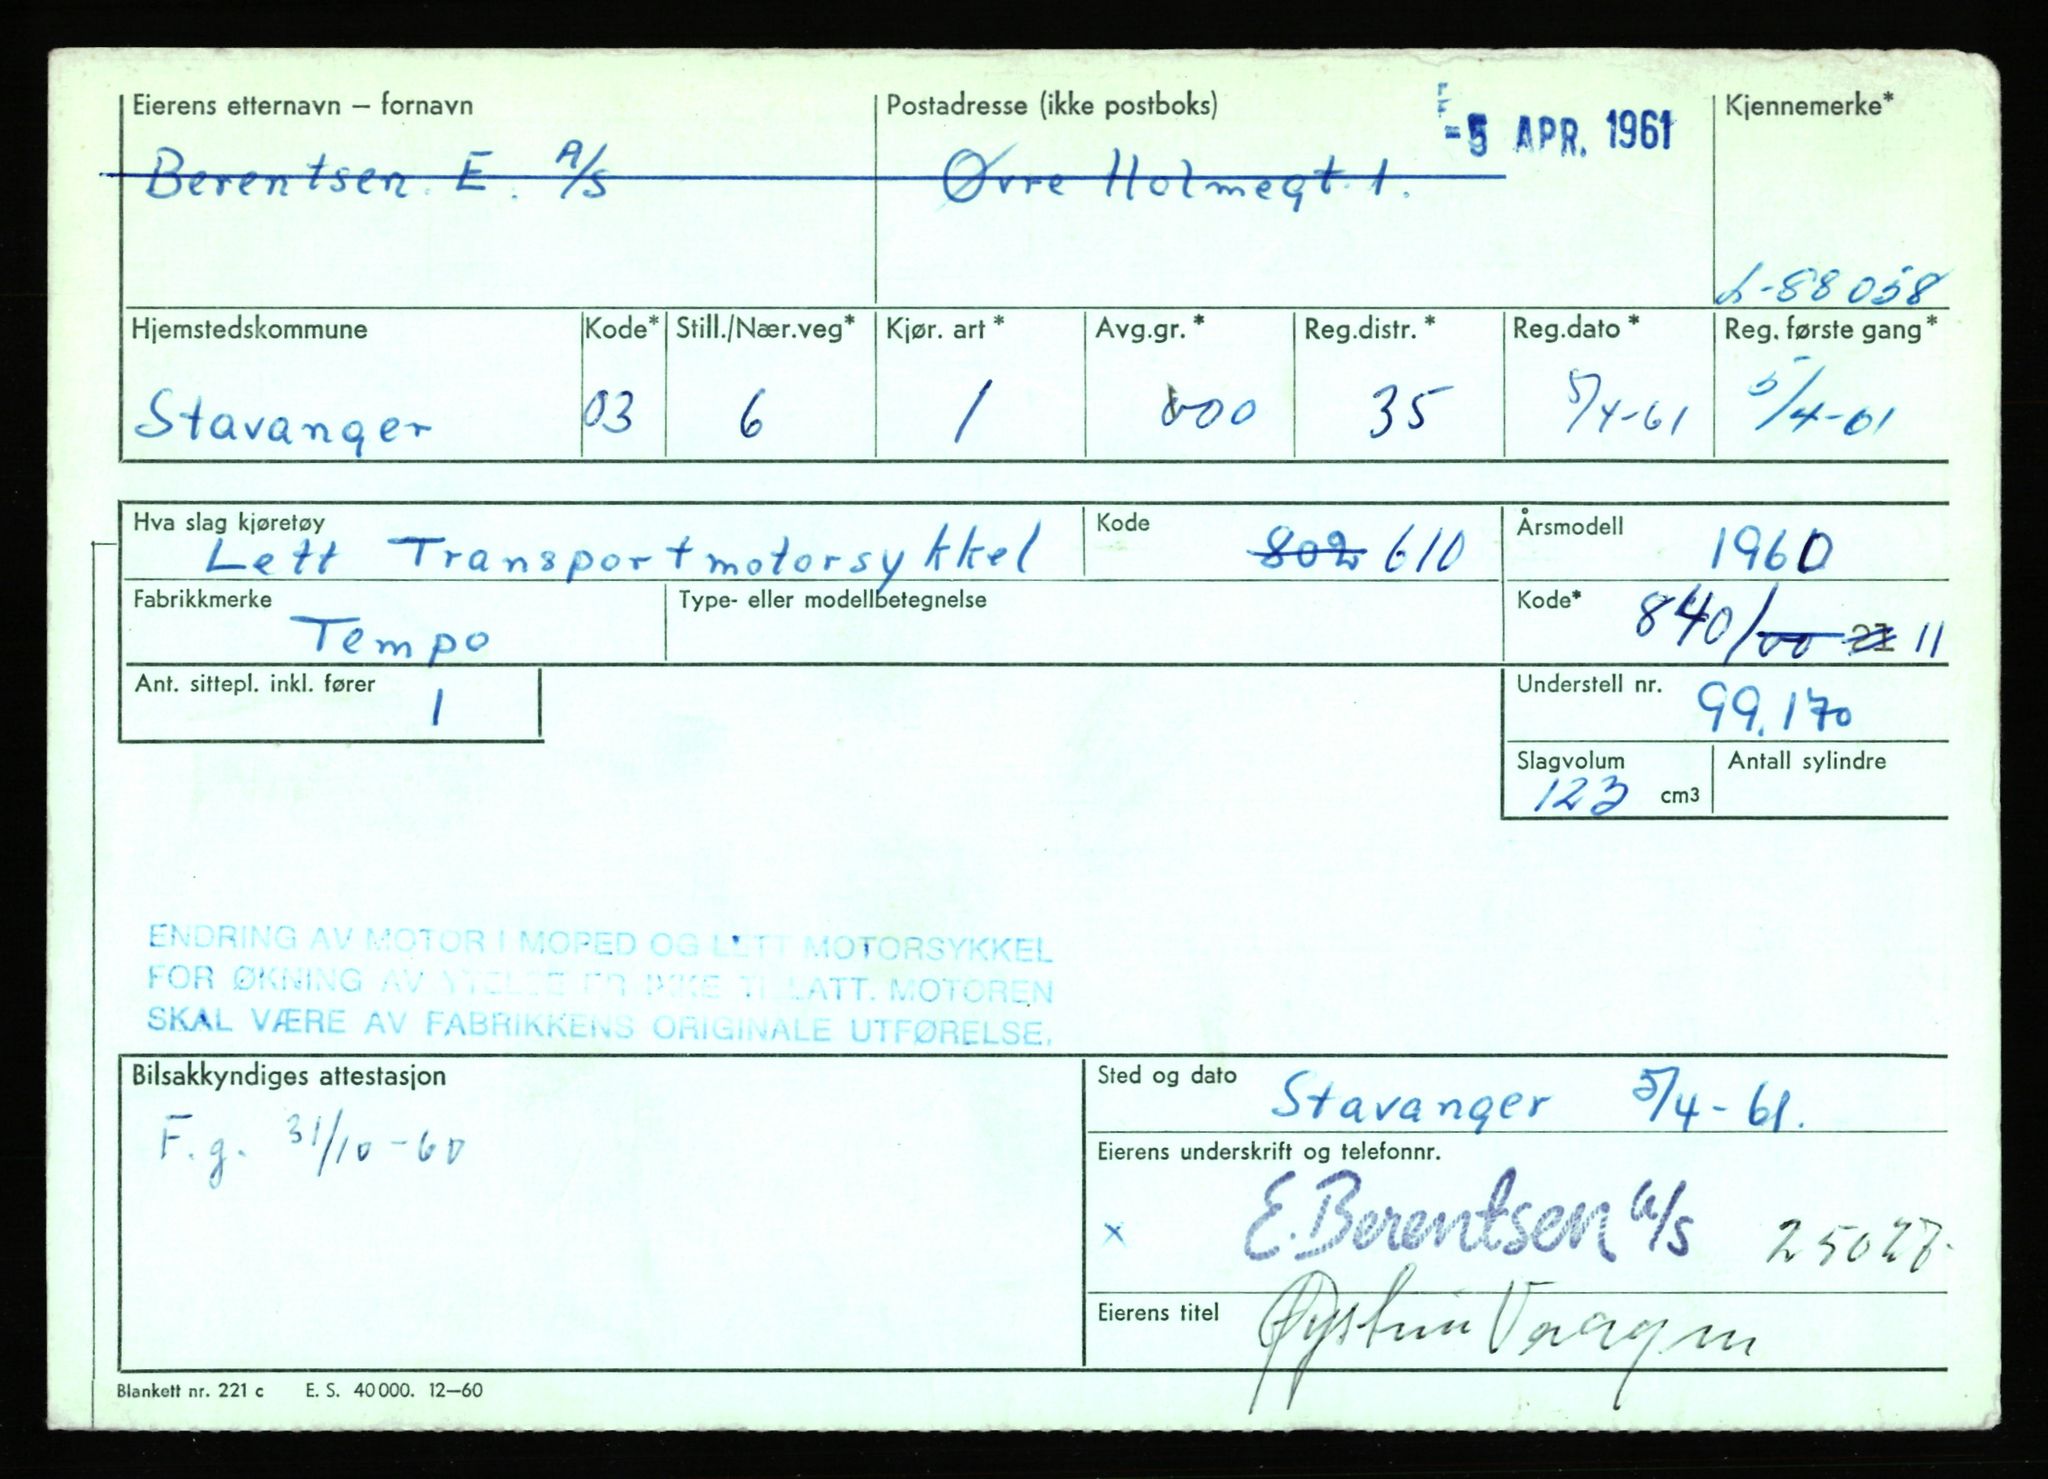 Eierens etternavn – fornavn
Postadresse (ikke postboks)
-5 APR. 1961
Kjennemerke*
Berentsen. E. A/S
Øvre Holmegt. 1.
L-88058
Hjemstedskommune
Kode*
Still./Nær.veg*
Kjør. art *
Avg.gr. *
Reg.distr. *
Reg.dato *
Reg. første gang*
Stavanger
03
6
1
000
35
5/4-61
5/4-61
Hva slag kjøretøy
Lett Transportmotorsykkel
Kode
802 610
Årsmodell
1960
Fabrikkmerke
Tempo
Type- eller modellbetegnelse
Kode*
840/00 21 11
Ant. sittepl. inkl. fører
1
Understell nr.
99.170
Slagvolum
123 cm3
Antall sylindre
ENDRING AV MOTOR I MOPED OG LETT MOTORSYKKEL
FOR ØKNING AV YTELSE ER IKKE TILLATT. MOTOREN
SKAL VÆRE AV FABRIKKENS ORIGINALE UTFØRELSE.
Bilsakkyndiges attestasjon
F.g. 31/10-60
Sted og dato
Stavanger 5/4-61.
Eierens underskrift og telefonnr.
x E. Berentsen A/S
Eierens titel
Blankett nr. 221 c E. S. 40000. 12–60